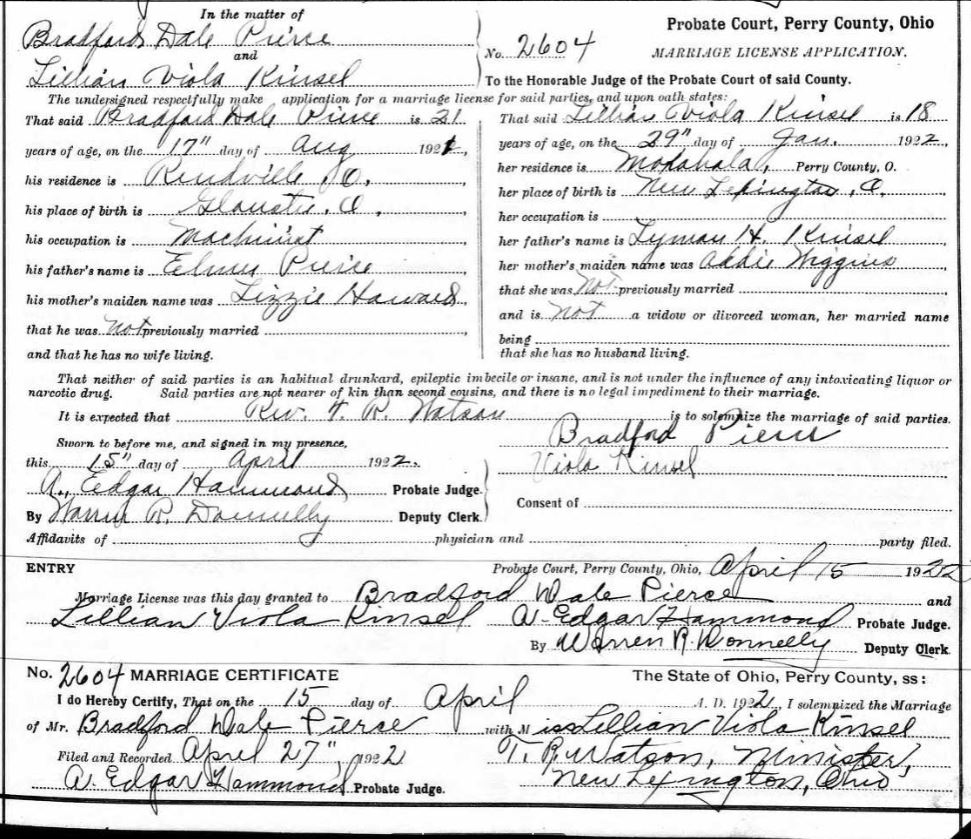 In the matter of
Bradford Dale Pierce
and
Lillian Viola Kinsel
Probate Court, Perry County, Ohio
No. 2604 MARRIAGE LICENSE APPLICATION.
To the Honorable Judge of the Probate Court of said County.
The undersigned respectfully make application for a marriage license for said parties, and upon oath states:
That said Bradford Dale Pierce is 21
years of age, on the 17" day of Aug 1921
his residence is Rendville O.
his place of birth is Glouster, O.,
his occupation is Machinist
his father's name is Elmer Pierce
his mother's maiden name was Lizzie Howard
that he was not previously married
and that he has no wife living.
That said Lillian Viola Kinsel is 18
years of age, on the 29" day of Jan. 1922
her residence is Moxahala, Perry County, O.
her place of birth is New Lexington, O.
her occupation is
her father's name is Lyman H. Kinsel
her mother's maiden name was Addie Wiggins
that she was Not previously married
and is not a widow or divorced woman, her married name
being
that she has no husband living.
That neither of said parties is an habitual drunkard, epileptic imbecile or insane, and is not under the influence of any intoxicating liquor or
narcotic drug. Said parties are not nearer of kin than second cousins, and there is no legal impediment to their marriage.
It is expected that Rev. T. R. Watson is to solemnize the marriage of said parties.
Sworn to before me, and signed in my presence,
this 15" day of April 1922.
A. Edgar Hammond Probate Judge.
By Warren R. Donnelly Deputy Clerk.
Bradford Pierce
Viola Kinsel
Consent of
Affidavits of physician and party filed.
ENTRY Probate Court, Perry County, Ohio, April 15 1922
Marriage License was this day granted to Bradford Dale Pierce and
Lillian Viola Kinsel A. Edgar Hammond Probate Judge.
By Warren R. Donnelly Deputy Clerk.
No. 2604 MARRIAGE CERTIFICATE The State of Ohio, Perry County, ss:
I do Hereby Certify, That on the 15 day of April A. D. 1922, I solemnized the Marriage
of Mr. Bradford Dale Pierce with Miss Lillian Viola Kinsel
Filed and Recorded April 27", 1922 T. R. Watson, Minister,
A. Edgar Hammond Probate Judge. New Lexington, Ohio